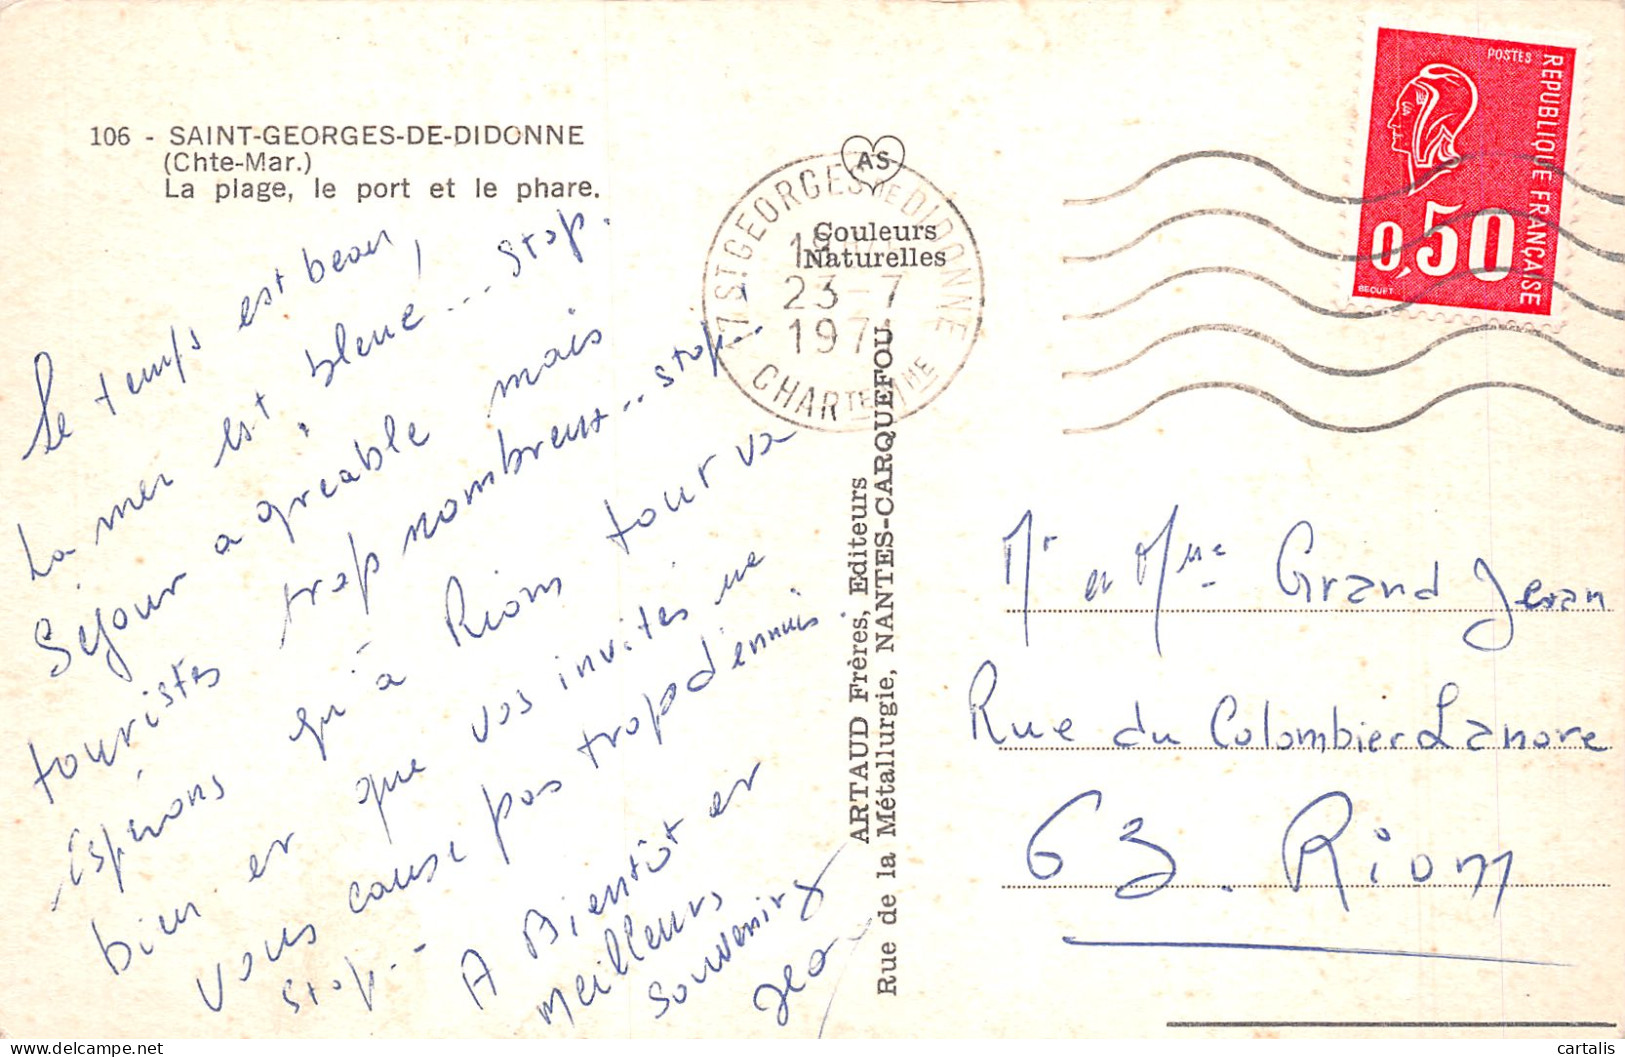 106 - SAINT-GEORGES-DE-DIDONNE
(Chte-Mar.)
La plage, le port et le phare.
Le temps est beau,
La mer est bleue... stop.
Séjour agréable mais
touristes trop nombreux... stop.
Espérons qu'à Riom tout va
bien et que vos invités ne
vous cause pas trop d'ennuis.
stop. -
A Bientôt et
meilleurs
souvenirs
AS
Couleurs
Naturelles
17 ST GEORGES DE DIDONNE
23-7
1971
CHARTE MME
ARTAUD Frères, Editeurs
Rue de la Métallurgie, NANTES-CARQUEFOU
POSTES
REPUBLIQUE FRANÇAISE
0,50
BEQUET
Mr et Mme Grand Jean
Rue du Colombier Lanore
63. Riom
cartalis